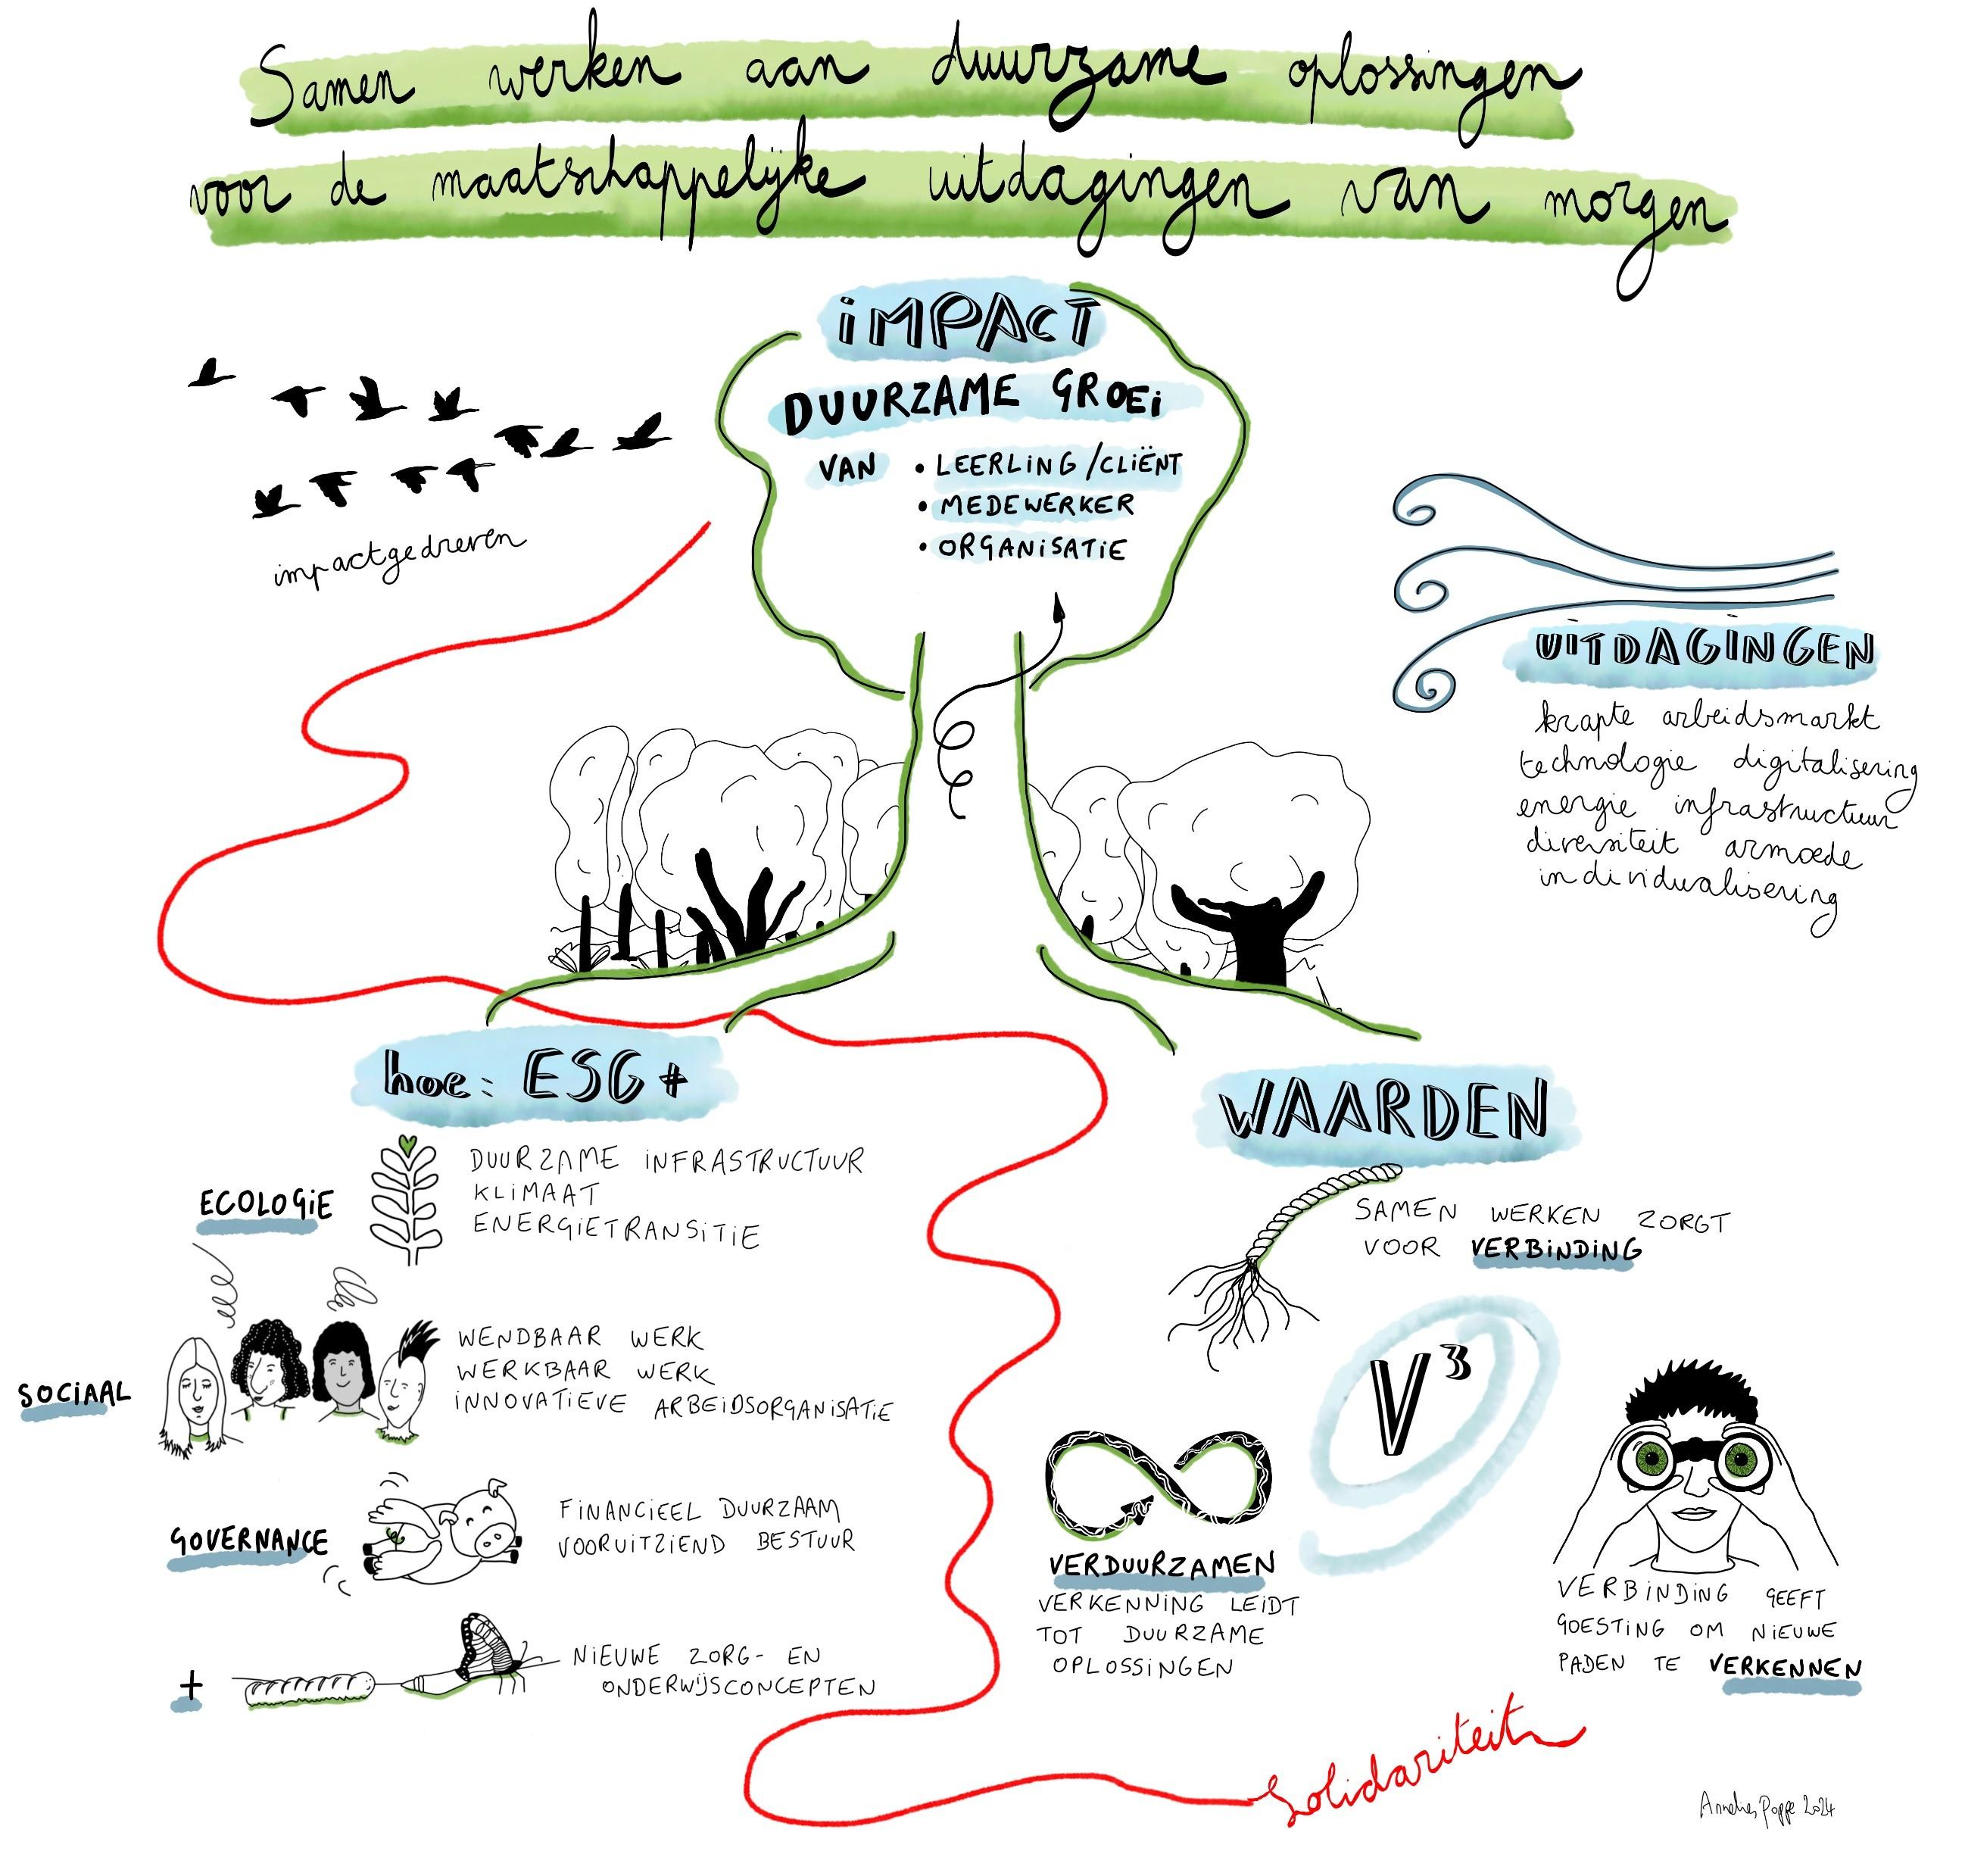 Samen werken aan duurzame oplossingen
voor de maatschappelijke uitdagingen van morgen
IMPACT
DUURZAME GROEI
VAN • LEERLING/CLIËNT
• MEDEWERKER
• ORGANISATIE
impactgedreven
UITDAGINGEN
krapte arbeidsmarkt
technologie digitalisering
energie infrastructuur
diversiteit armoede
individualisering
hoe: ESG+
ECOLOGIE
DUURZAME INFRASTRUCTUUR
KLIMAAT
ENERGIETRANSITIE
SOCIAAL
WENDBAAR WERK
WERKBAAR WERK
INNOVATIEVE ARBEIDSORGANISATIE
GOVERNANCE
FINANCIEEL DUURZAAM
VOORUITZIEND BESTUUR
+
NIEUWE ZORG- EN
ONDERWIJSCONCEPTEN
WAARDEN
SAMEN WERKEN ZORGT
VOOR VERBINDING
V³
VERDUURZAMEN
VERKENNING LEIDT
TOT DUURZAME
OPLOSSINGEN
VERBINDING GEEFT
GOESTING OM NIEUWE
PADEN TE VERKENNEN
Solidariteit
Annelies Poppe 2024